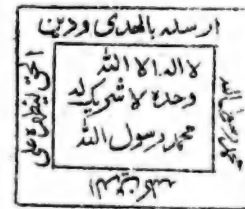 ارسله بالهدى ودين
الحق ليظهره على
لا اله الا الله
وحده لا شريك له
محمد رسول الله